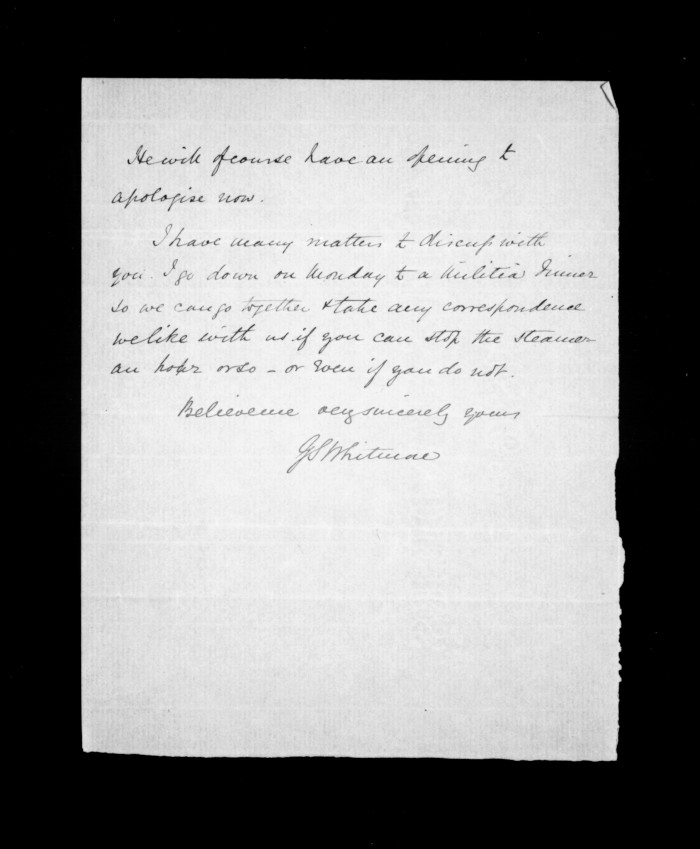 He will of course have an opening to
apologise now.
I have many matters to discuss with
you. I go down on Monday to a Militia Dinner
so we can go together & take any correspondence
we like with us if you can stop the steamer
an hour or so - or even if you do not.
Believe me very sincerely yours
GSWhitmore